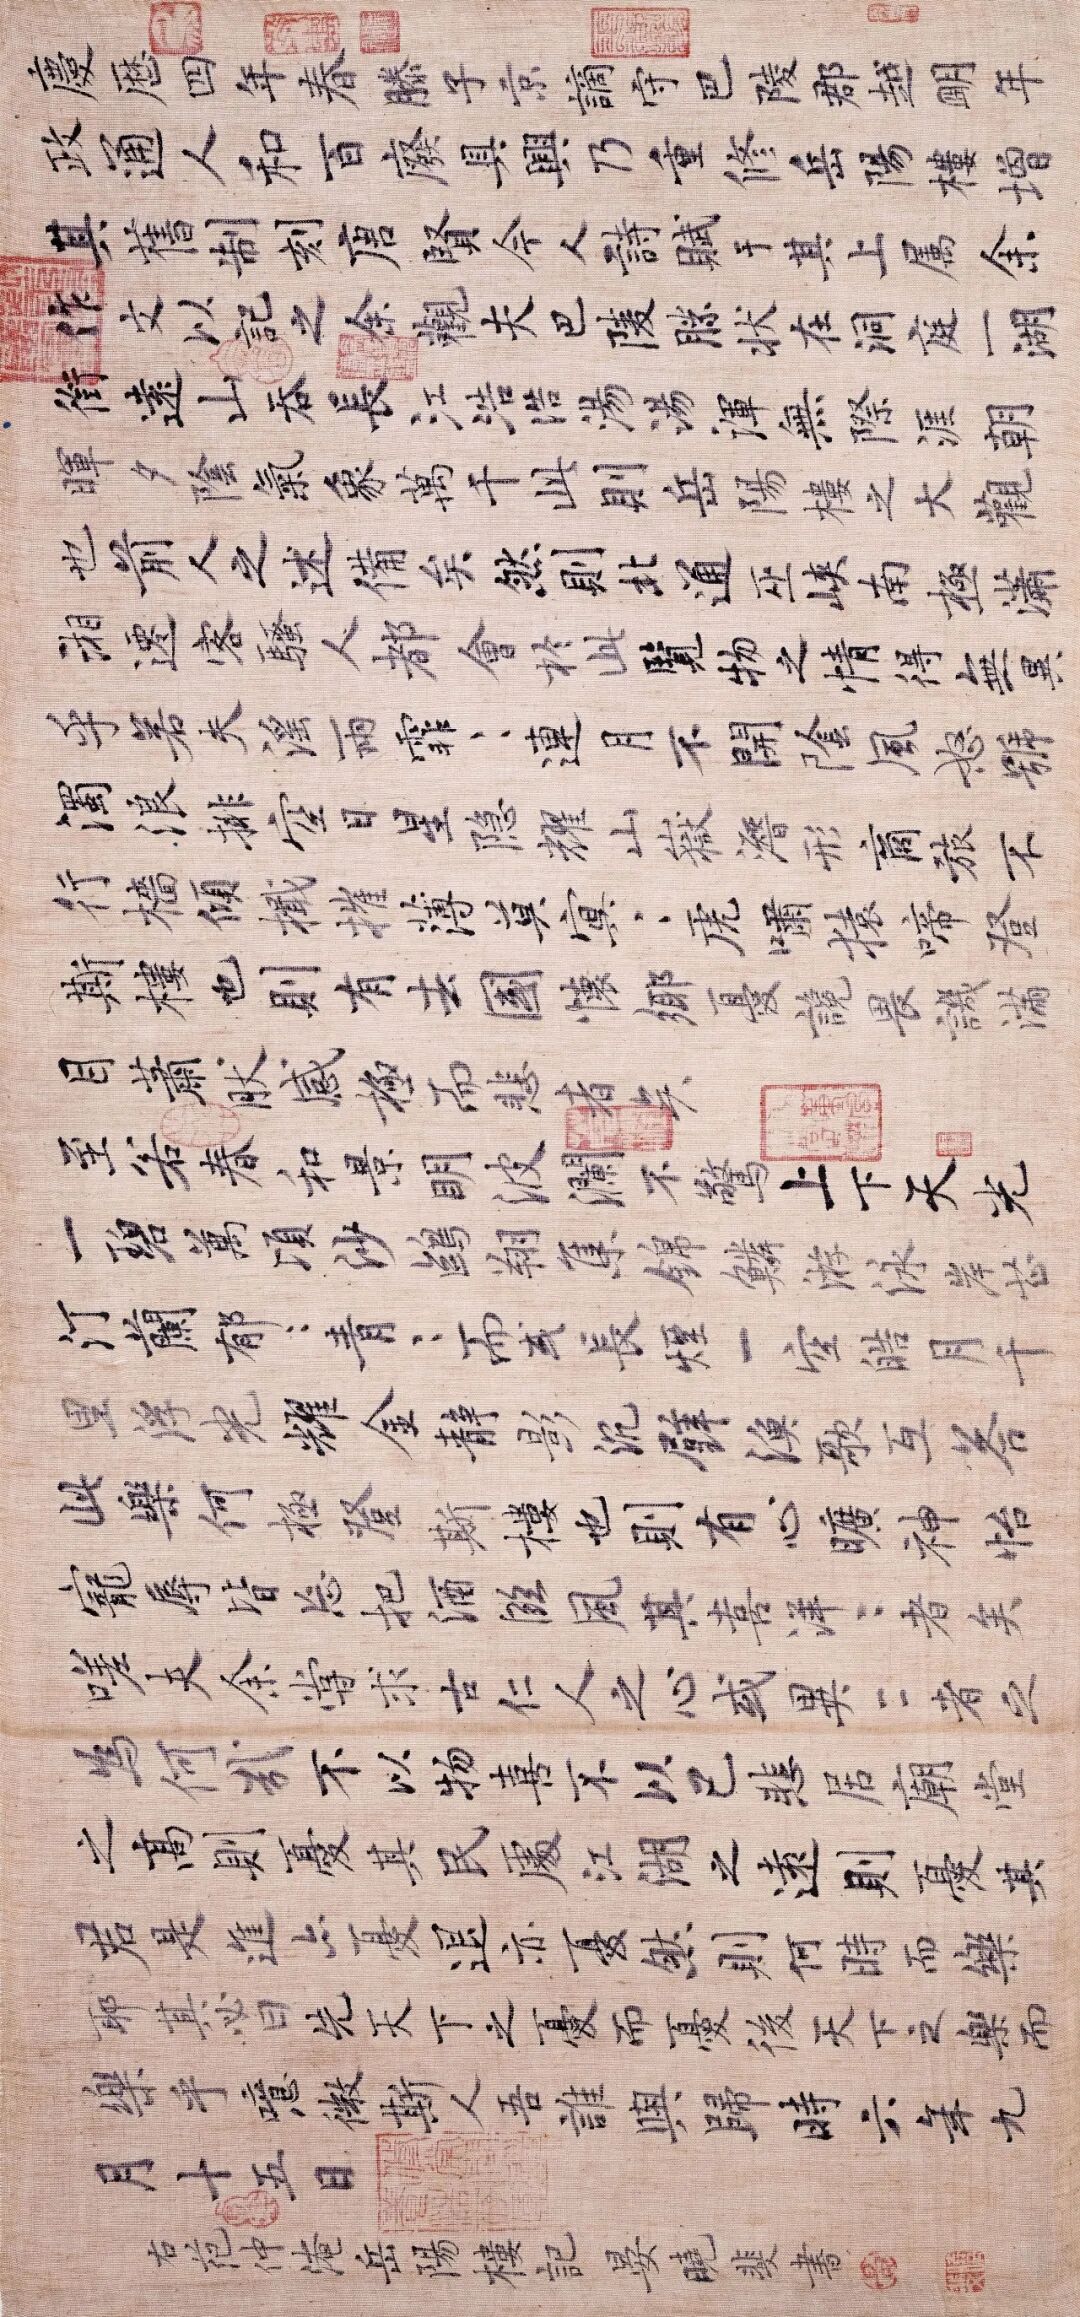 慶歷四年春滕子京謫守巴陵郡越明年
政通人和百廢具興乃重修岳陽樓增
其舊制刻唐賢今人詩賦于其上属余
作文以記之余觀夫巴陵勝狀在洞庭一湖
銜遠山吞長江浩浩湯湯渾無際涯朝
暉夕陰氣象萬千此則岳陽樓之大觀
也前人之述備矣然則北通巫峡南極瀟
湘遷客騷人都會於此覽物之情得無異
乎若夫淫雨霏〻連月不開陰風怒號
濁浪排空日星隐耀山嶽潛形商旅不
行檣傾檝摧薄莫冥〻虎嘯猿啼登
斯樓也則有去國懷鄉憂讒畏譏滿
目蕭肰感極而悲者矣
至若春和景明波瀾不驚上下天光
一碧萬頃沙鷗翔集錦鱗游泳岸芷
汀蘭郁〻青〻而或長煙一空皓月千
里浮光耀金靜影沉璧漁歌互答
此樂何極登斯樓也則有心曠神怡
寵辱皆忘把酒臨風其喜洋〻者矣
嗟夫余嘗求古仁人之心或異二者之
為何哉不以物喜不以己悲居廟堂
之高則憂其民處江湖之遠則憂其
君是進亦憂退亦憂然則何時而樂
耶其必曰先天下之憂而憂後天下之樂而
樂乎噫微斯人吾誰與歸時六年九
月十五日
右范仲淹岳陽樓記 晏曉斐書